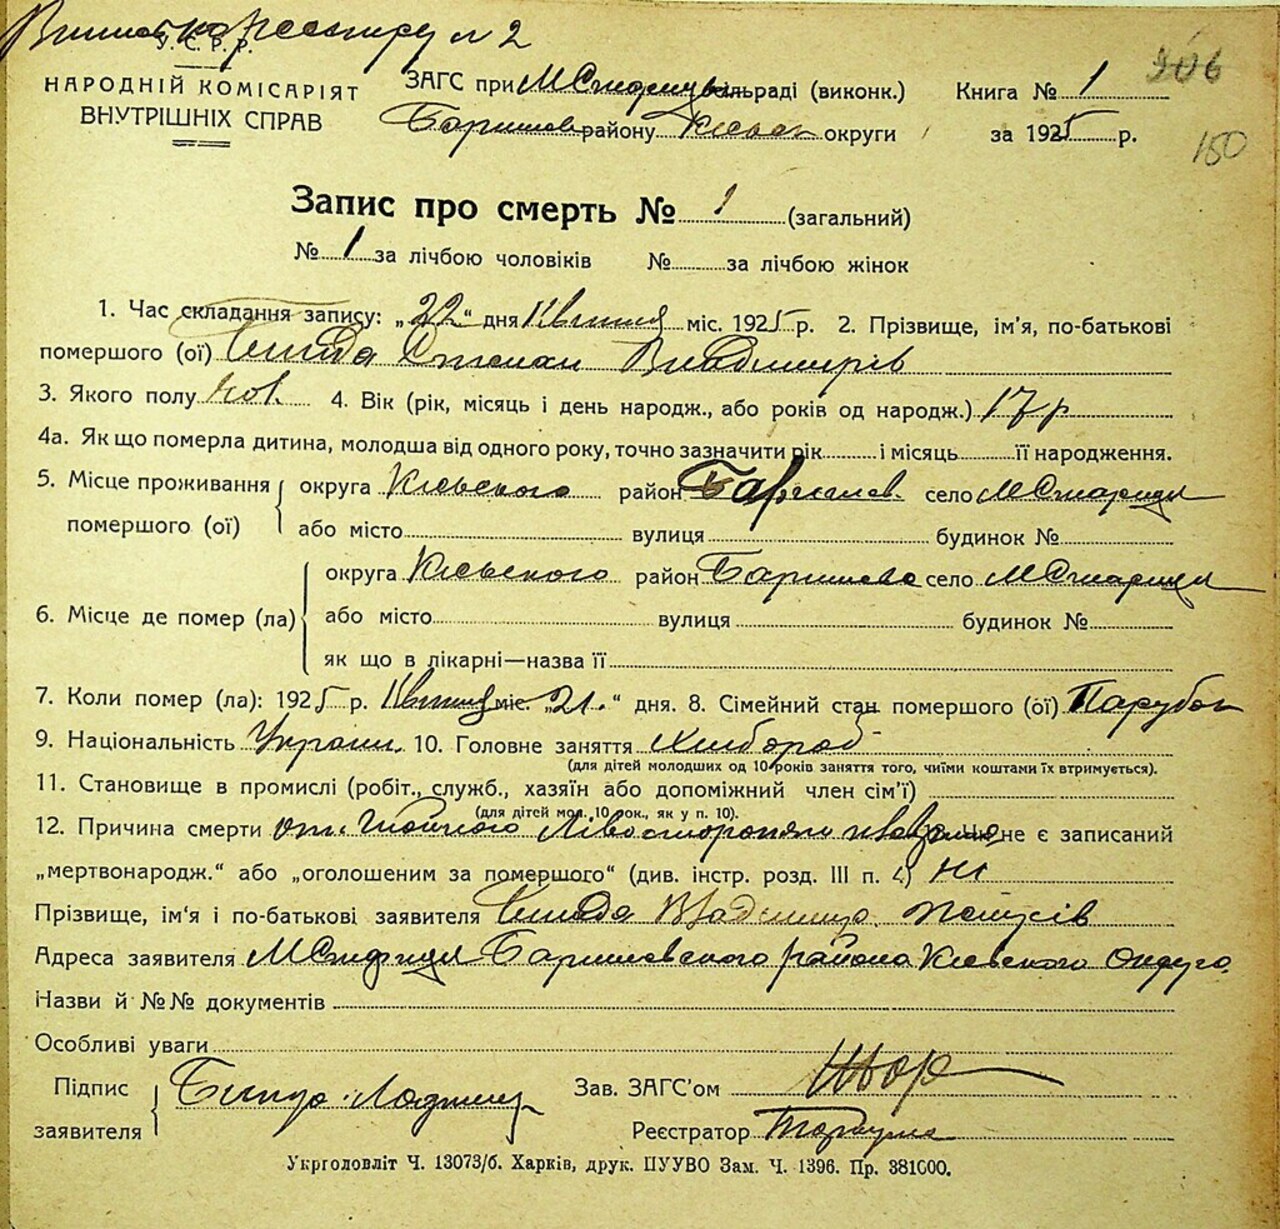 У.С.Р.Р.
НАРОДНІЙ КОМІСАРІЯТ
ВНУТРІШНІХ СПРАВ
ЗАГС при МСтариц сільраді (виконк.)
Баришев району Києвск округи
Книга № 1
за 1925 р.
206
150
Запис про смерть № 1 (загальний)
№ 1 за лічбою чоловіків № за лічбою жінок
1. Час складання запису: „22“ дня Квітня міс. 1925 р. 2. Прізвище, ім'я, по-батькові
помершого (ої) Степан Владимирів
3. Якого полу чол. 4. Вік (рік, місяць і день народж., або років од народж.) 17 р
4а. Як що померла дитина, молодша від одного року, точно зазначити рік і місяць її народження.
5. Місце проживання помершого (ої) округа Кієвского район Баришев. село МСтариця
або місто вулиця будинок №
6. Місце де помер (ла) округа Кієвского район Баришевс село МСтариця
або місто вулиця будинок №
як що в лікарні—назва її
7. Коли помер (ла): 1925 р. Квітня міс. „21.“ дня. 8. Сімейний стан помершого (ої) Парубок
9. Національність Україн. 10. Головне заняття Хлібороб
(для дітей молодших од 10 років заняття того, чиїми коштами їх втримується).
11. Становище в промислі (робіт., служб., хазяїн або допоміжний член сім'ї)
(для дітей мол. 10 рок., як у п. 10).
12. Причина смерти от Гнойного Лівосторонян Чи не є записаний
„мертвонародж.“ або „оголошеним за помершого“ (див. інстр. розд. III п. 4) Ні
Прізвище, ім'я і по-батькові заявителя Владимир
Адреса заявителя МСтариця Баришевского района Кієвского Округа
Назви й №№ документів
Особливі уваги
Підпис заявителя
Зав. ЗАГС'ом
Реєстратор
Укрголовліт Ч. 13073/б. Харків, друк. ПУУВО Зам. Ч. 1396. Пр. 381000.